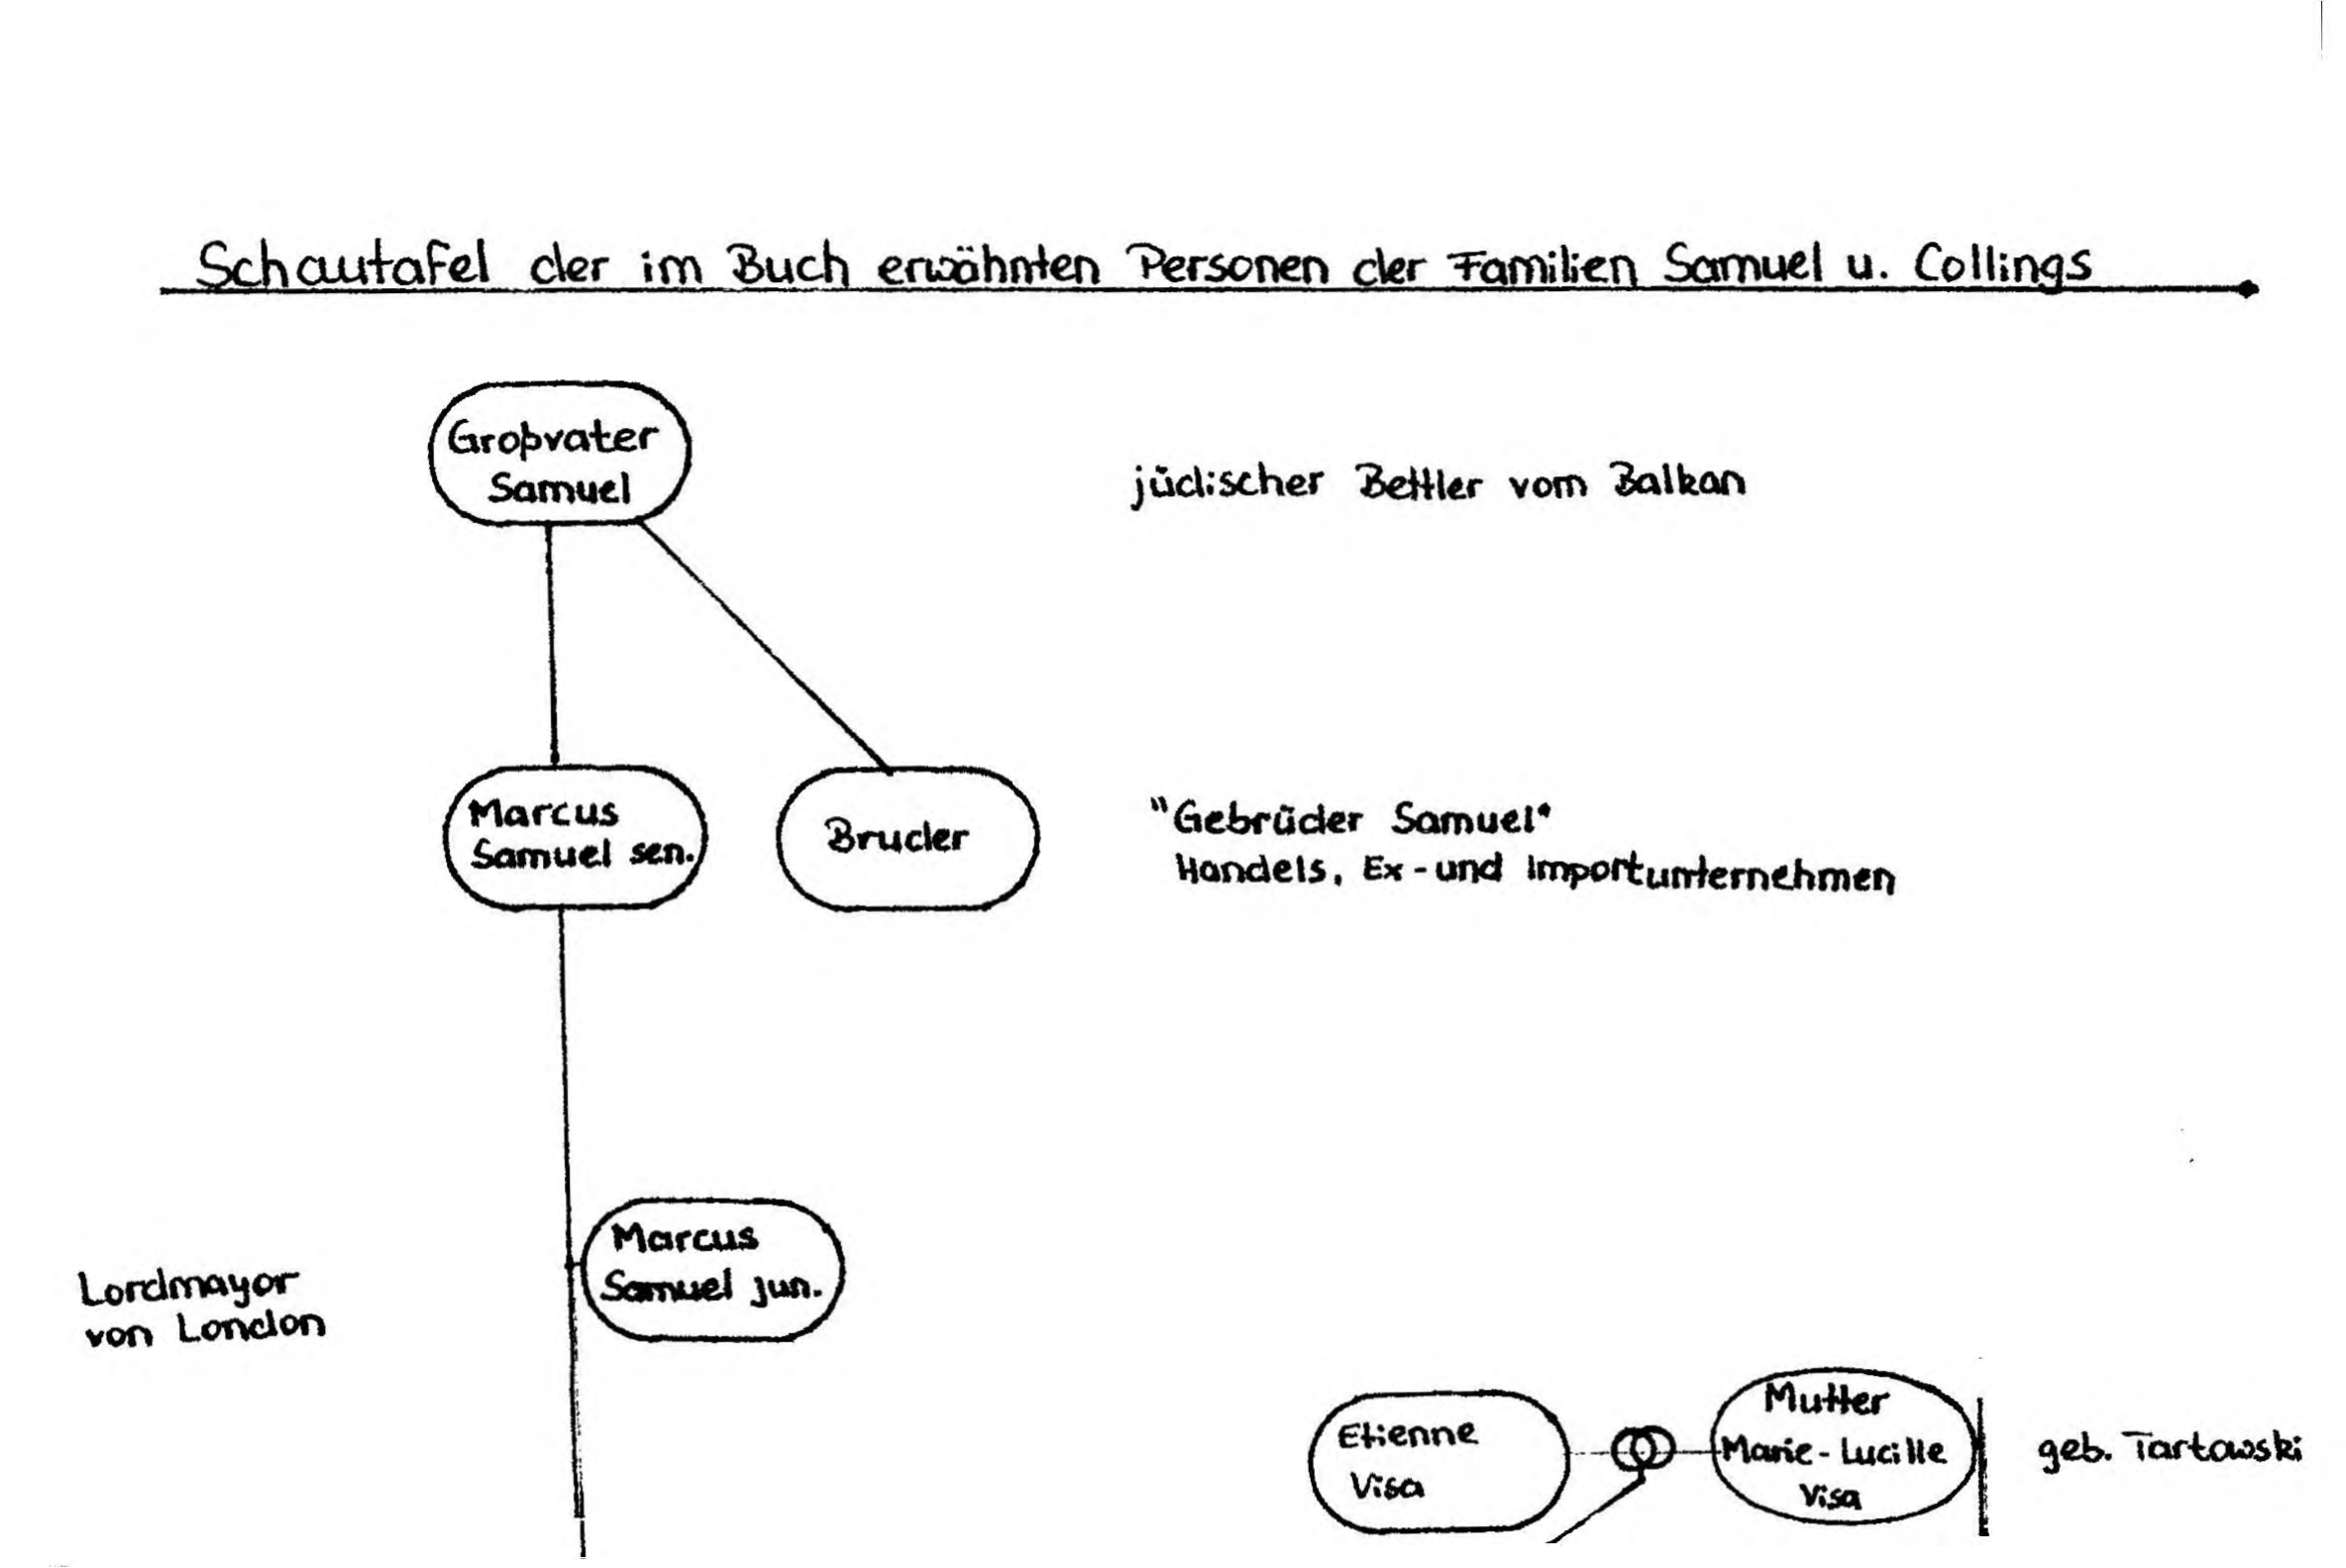 Schautafel der im Buch erwähnten Personen der Familien Samuel u. Collings
Großvater
Samuel
jüdischer Bettler vom Balkan
Marcus
Samuel sen.
Bruder
"Gebrüder Samuel"
Handels, Ex-und Importunternehmen
Marcus
Samuel jun.
Lordmayor
von London
Etienne
Visa
Mutter
Marie-Lucille
Visa
geb. Tartowski